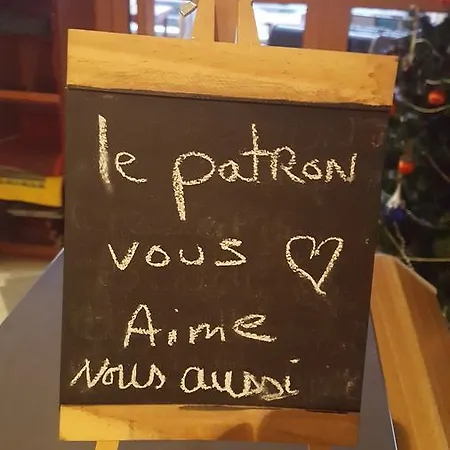 le patRON
vous ♡
Aime
Nous aussi